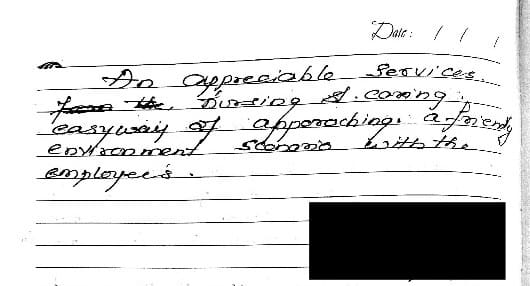 Date: / / /
An appreciable Services
from the, nursing & caring,
easyway of apporaching. a friendy
environment scenario with the
employee's.